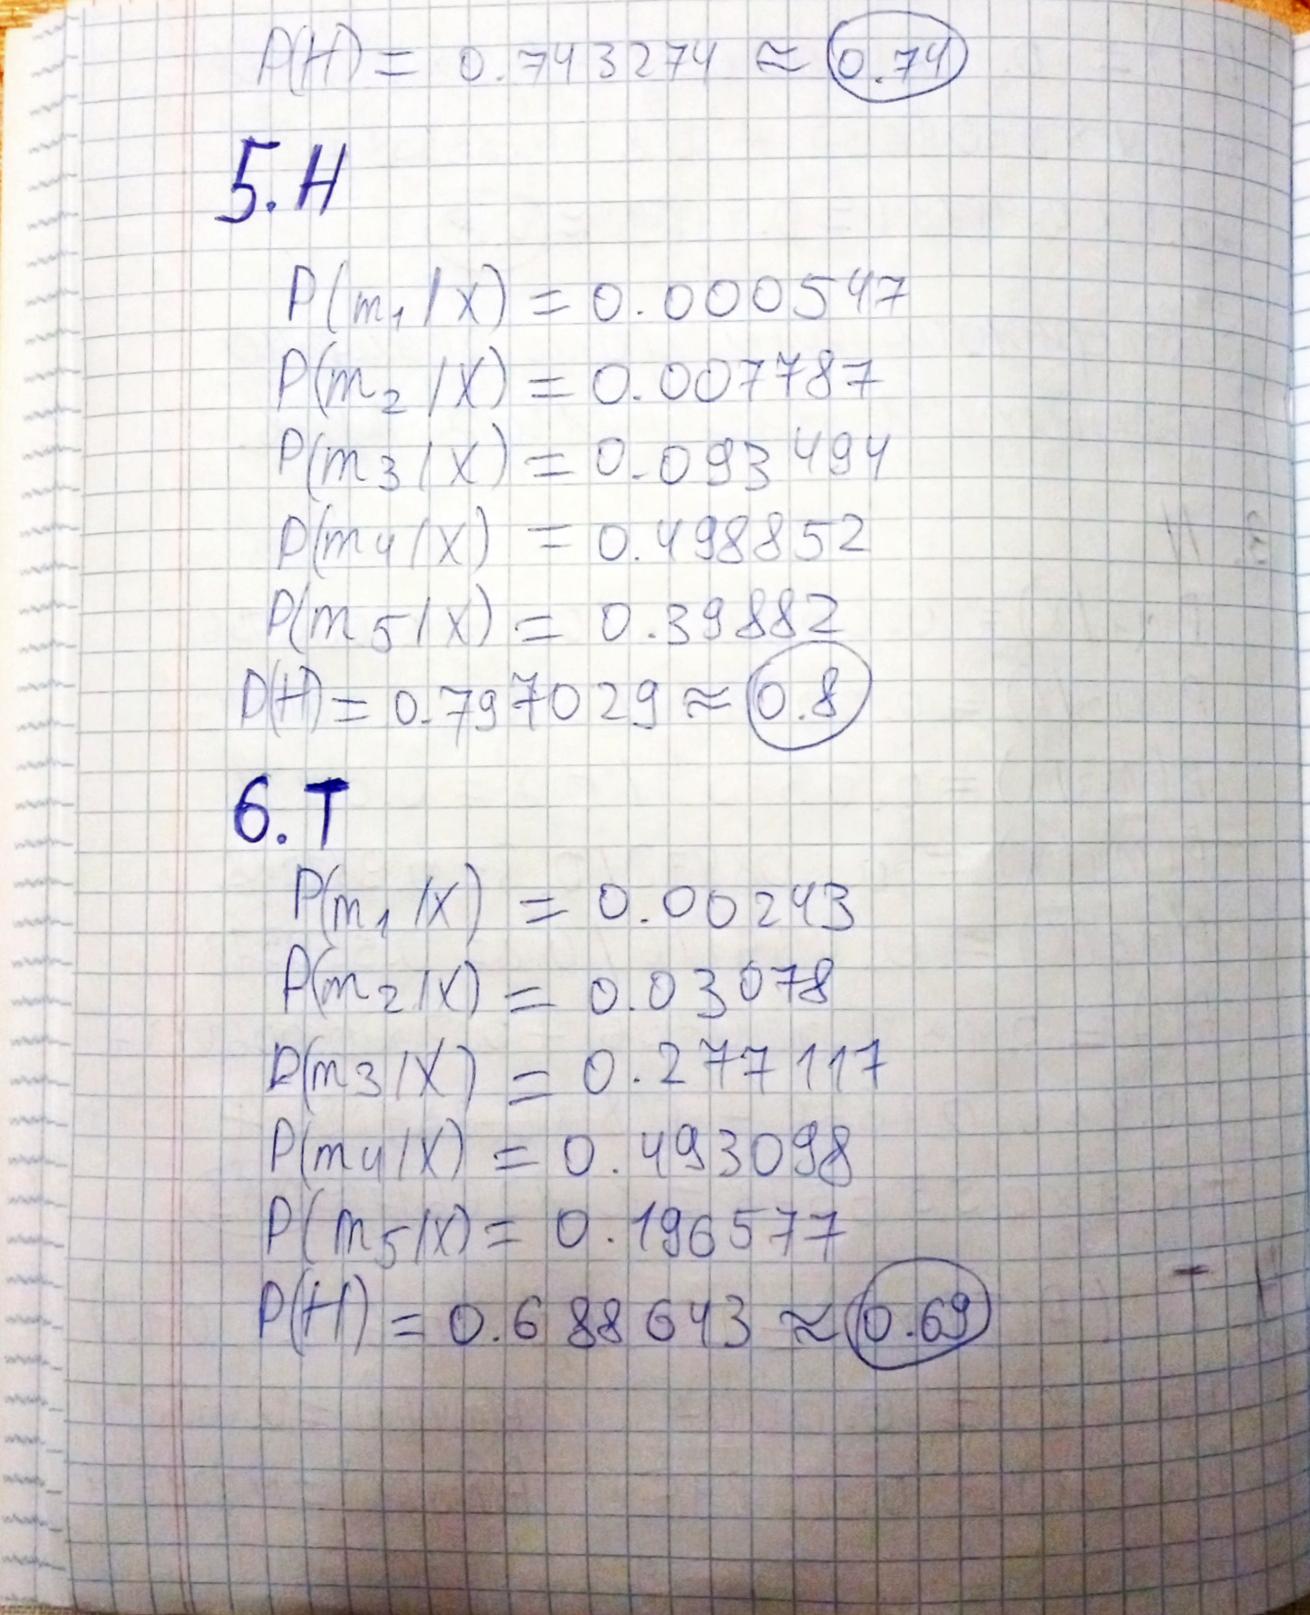 P(H) = 0.743274 ≈ 0.74
5.H
P(m₁/X) = 0.000547
P(m₂/X) = 0.007787
P(m3/X) = 0.093494
P(m4/X) = 0.498852
P(m5/X) = 0.39882
P(H) = 0.797029 ≈ 0.8
6.T
P(m₁/X) = 0.00243
P(m₂/X) = 0.03078
P(m3/X) = 0.277117
P(m4/X) = 0.493098
P(m5/X) = 0.196577
P(H) = 0.688643 ≈ 0.69